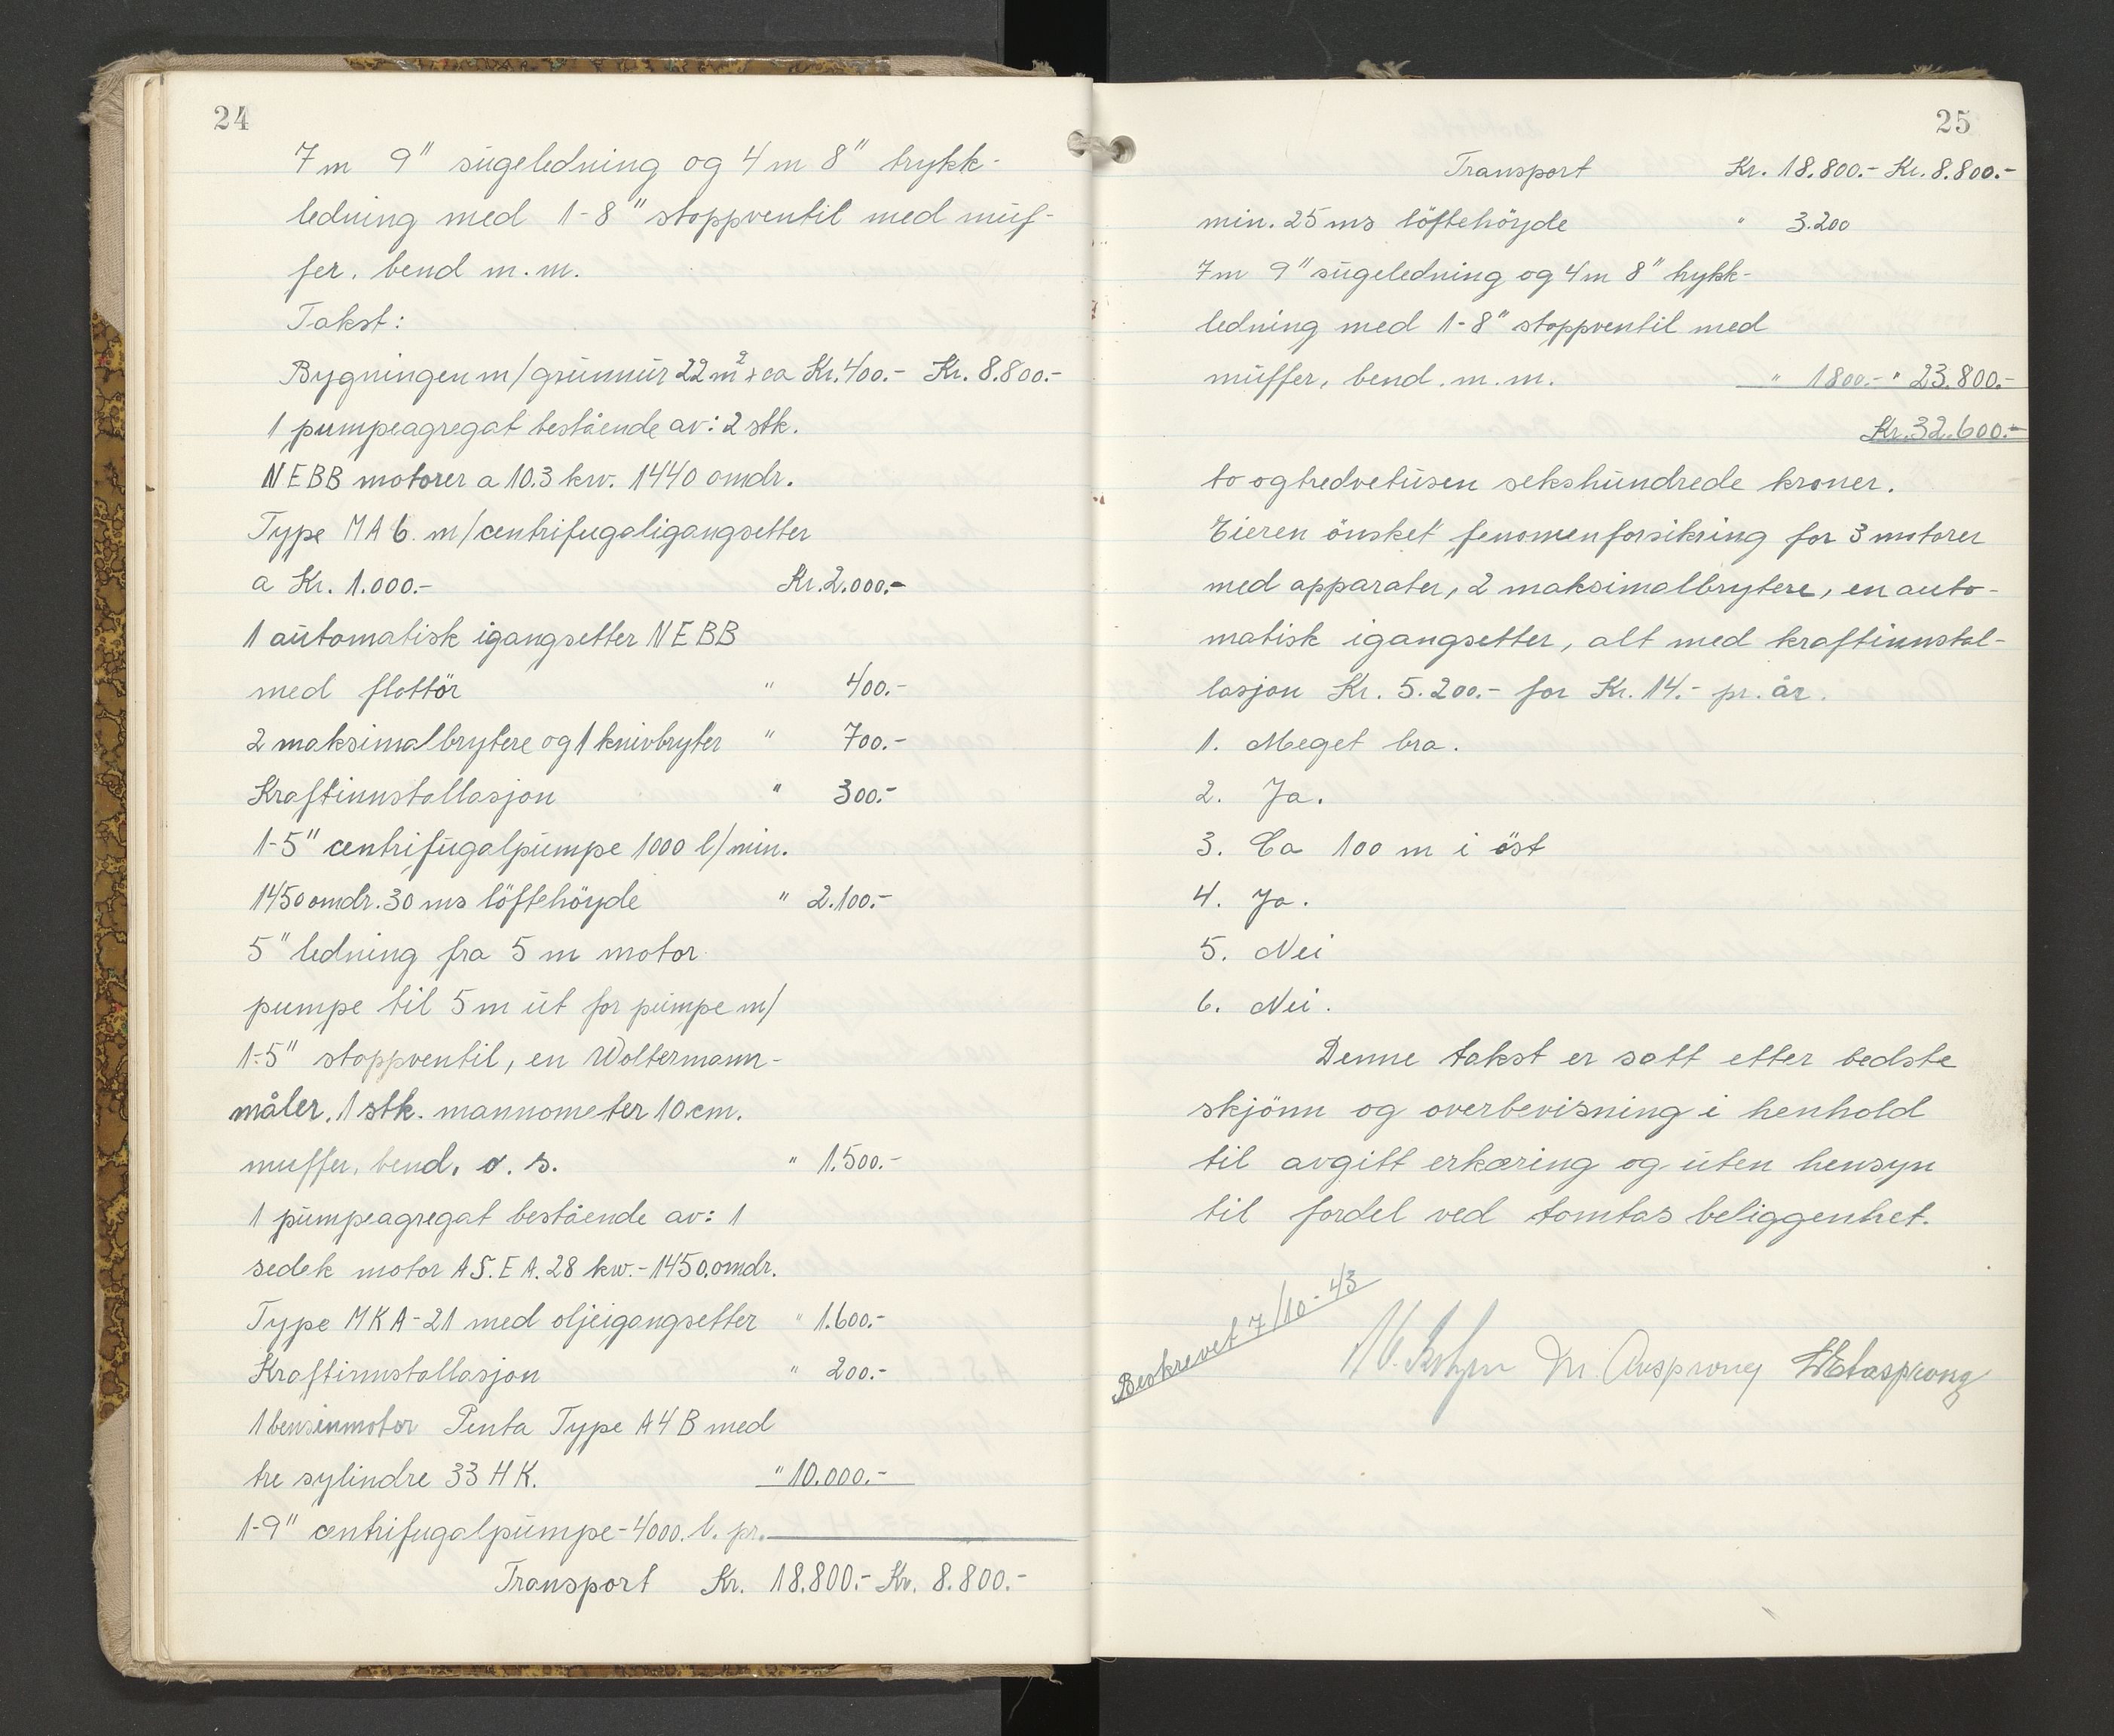 24
7 m 9" sugeledning og 4 m 8" trykk-
ledning med 1-8" stoppventil med muf-
fer, bend m.m.
Takst:
Bygningen m/grunnur 22 m² x ca Kr. 400.- Kr. 8.800.-
1 pumpeagregat bestående av: 2 stk.
NEBB motorer a 10.3 kw. 1440 omdr.
Type MA 6. m/centrifugaligangsetter
a Kr. 1.000.- Kr. 2.000.-
1 automatisk igangsetter NEBB
med flottör " 400.-
2 maksimalbrytere og 1 knivbryter " 700.-
Kraftinnstallasjon " 300.-
1-5" centrifugalpumpe 1000 l/min.
1450 omdr. 30 ms löftehöyde " 2.100.-
5" ledning fra 5 m motor
pumpe til 5 m ut for pumpe m/
1-5" stoppventil, en Woltermann-
måler, 1 stk. mannometer 10 cm.
muffer, bend, o. s. " 1.500.-
1 pumpeagregat bestående av: 1
sedek motor A S. E A. 28 kw.- 1450 omdr.
Type MKA-21 med oljeigangsetter " 1.600.-
Kraftinnstallasjon " 200.-
1 bensinmotor Penta Type A4B med
tre sylindre 33 HK. " 10.000.-
1-9" centrifugalpumpe - 4000. l. pr.
Transport Kr. 18.800.- Kr. 8.800.-
25
Transport Kr. 18.800.- Kr. 8.800.-
min. 25 ms löftehöyde " 3.200
7 m 9" sugeledning og 4 m 8" trykk-
ledning med 1-8" stoppventil med
muffer, bend. m. m. " 1800.- " 23.800.-
Kr. 32.600.-
to ogtredvetusen sekshundrede kroner.
Eieren önsket fenomenforsikring for 3 motorer
med apparater, 2 maksimalbrytere, en auto-
matisk igangsetter, alt med kraftinnstal-
lasjon Kr. 5.200.- for Kr. 14.- pr. år.
1. Meget bra.
2. Ja.
3. Ca 100 m i öst
4. Ja.
5. Nei
6. Nei.
Denne takst er satt etter bedste
skjönn og overbevisning i henhold
til avgitt erkæring og uten hensyn
til fordel ved tomtas beliggenhet.
Beskrevet 7/10-43